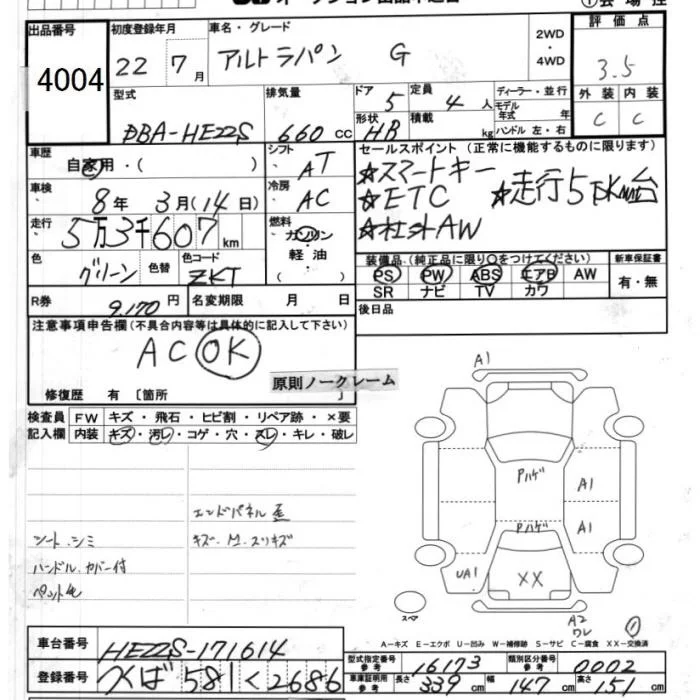 ①会場控
出品番号 初度登録年月 車名・グレード 2WD・4WD 評価点
4004 22年 7月 アルトラパン G 3.5
型式 排気量 ドア 定員 ディーラー・並行 外装 内装
DBA-HE22S 660cc 5 4人 モデル年式 年 C C
形状 HB 積載 kg ハンドル 左・右
車歴 シフト セールスポイント (正常に機能するものに限ります)
自家用・( ) AT ★スマートキー
車検 冷房 ★ETC ★走行5万km台
8年 3月(14日) AC ★社外AW
走行 燃料
5万3千607km ガソリン
色 色替 色コード 軽油・( )
グリーン ZKT
装備品 (純正品に限り○をつけてください) 新車保証書
PS PW ABS エアB AW 有・無
SR ナビ TV カワ
R券 9,170円 名変期限 月 日 後日品
注意事項申告欄(不具合内容等は具体的に記入して下さい)
AC OK
原則ノークレーム
修復歴 有〔箇所 〕
検査員 FW キズ・飛石・ヒビ割・リペア跡・×要
記入欄 内装 キズ・汚レ・コゲ・穴・スレ・キレ・破レ
A1
Pハゲ A1
Pハゲ A1
UA1 XX
エンドパネル歪
シート・シミ キズ・M・スリキズ
ハンドル カバー付
ペット毛
スペア A2 ワレ ①
A-キズ E-エクボ U-凹み W-補修跡 S-サビ C-腐食 XX-交換済
車台番号 HE22S-171614
登録番号 つくば 581 く 2686
型式指定番号 参考 16173 類別区分番号 参考 0002
車庫証明用 参考 長さ 339cm 幅 147cm 高さ 151cm